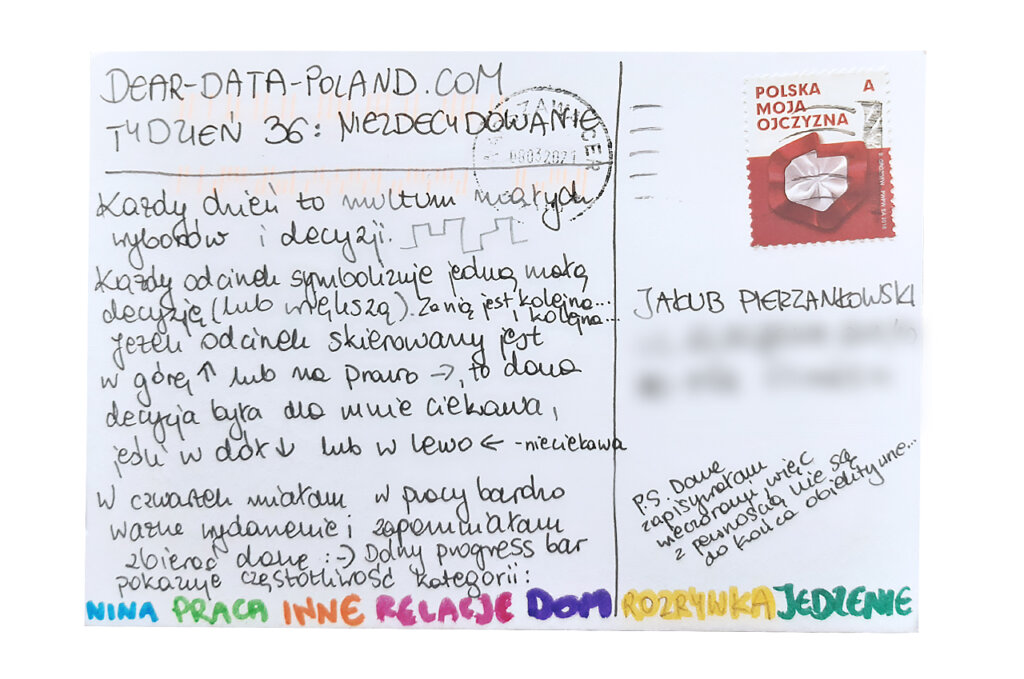 DEAR-DATA-POLAND.COM
TYDZIEŃ 36: NIEZDECYDOWANIE
Każdy dzień to multum małych
wyborów i decyzji.
Każdy odcinek symbolizuje jedną małą
decyzję (lub większą). Za nią jest kolejna...
i kolejna...
Jeżeli odcinek skierowany jest
w górę ↑ lub na prawo →, to dana
decyzja była dla mnie ciekawa,
jeśli w dół ↓ lub w lewo ← - nieciekawa
W czwartek miałam w pracy bardzo
ważne wydarzenie i zapomniałam
zbierać dane :-) Dolny progress bar
pokazuje częstotliwość kategorii:
NINA PRACA INNE RELACJE DOM ROZRYWKA JEDZENIE
POLSKA A
MOJA
OJCZYZNA
JAKUB PIERZANKOWSKI
P.S. Dane
zapisywałam
wieczorami, więc
z pewnością nie są
do końca obiektywne...